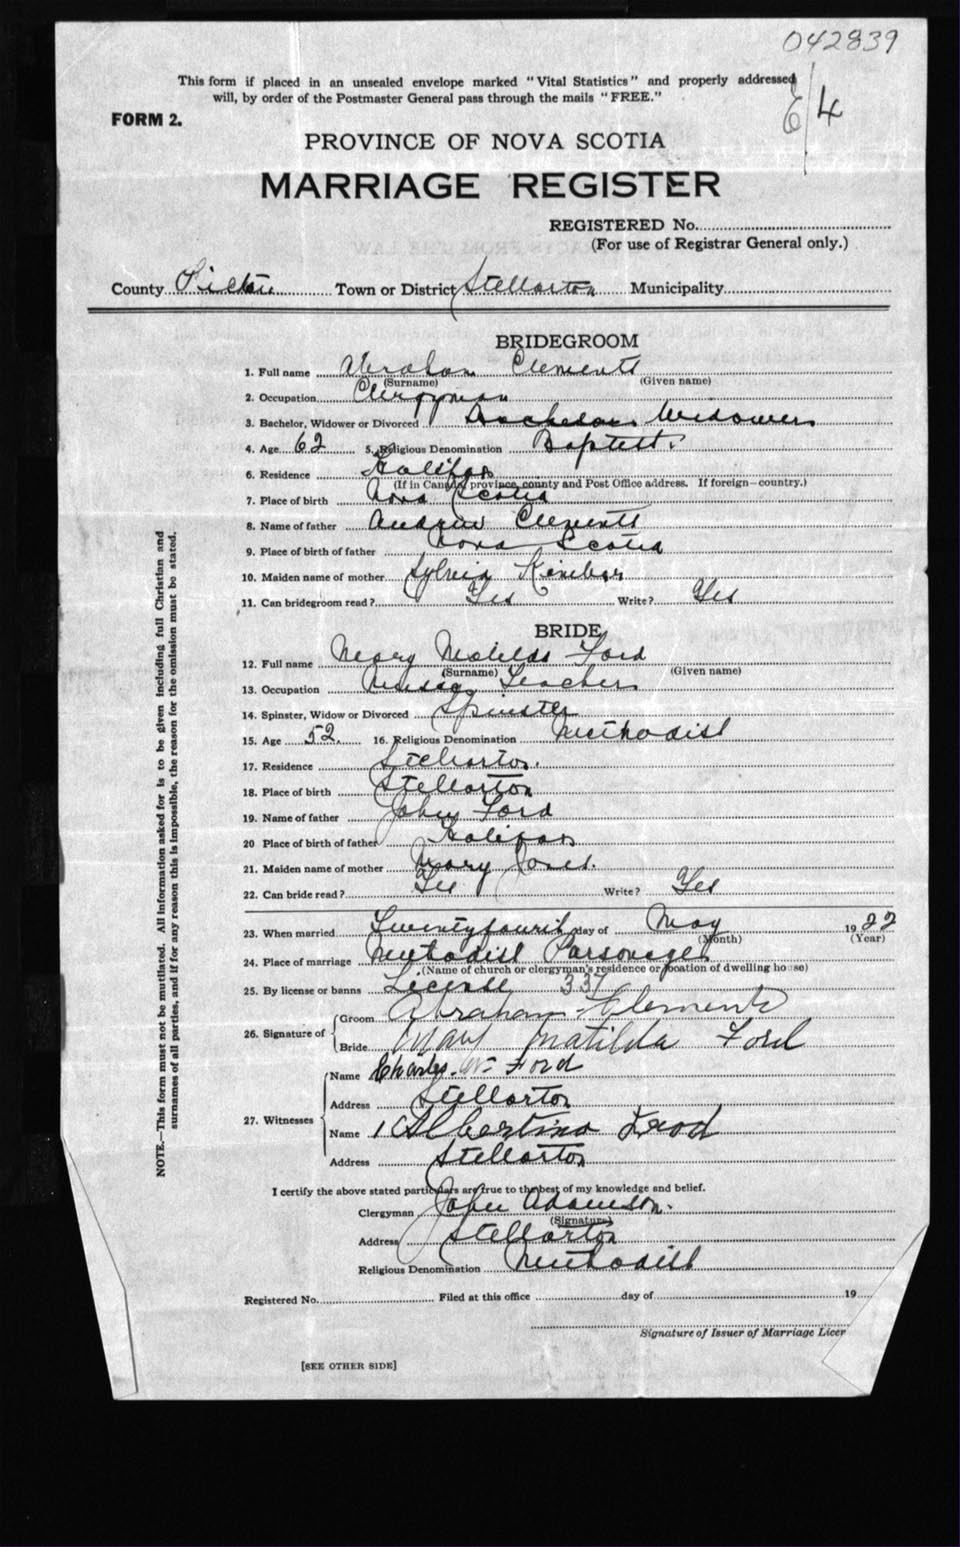 042839
This form if placed in an unsealed envelope marked "Vital Statistics" and properly addressed
will, by order of the Postmaster General pass through the mails "FREE."
E/4
FORM 2.
PROVINCE OF NOVA SCOTIA
MARRIAGE REGISTER
REGISTERED No.
(For use of Registrar General only.)
County Pictou Town or District Stellarton Municipality
BRIDEGROOM
1. Full name Abraham Clements
(Surname) (Given name)
2. Occupation Clergyman
3. Bachelor, Widower or Divorced Bachelor Widower
4. Age 62 5. Religious Denomination Baptist
6. Residence Halifax
(If in Canada, province, county and Post Office address. If foreign—country.)
7. Place of birth Nova Scotia
8. Name of father Andrew Clements
9. Place of birth of father Nova Scotia
10. Maiden name of mother Sylvia
11. Can bridegroom read? Yes Write? Yes
BRIDE
12. Full name Mary Matilda Ford
(Surname) (Given name)
13. Occupation Teacher
14. Spinster, Widow or Divorced Spinster
15. Age 52 16. Religious Denomination Methodist
17. Residence Stellarton.
18. Place of birth Stellarton
19. Name of father John Ford
20 Place of birth of father Halifax
21. Maiden name of mother Mary Jones.
22. Can bride read? Yes Write? Yes
23. When married Twentyfourth day of May 1922
(Month) (Year)
24. Place of marriage Methodist Parsonage
(Name of church or clergyman's residence or location of dwelling house)
25. By license or banns License 331
26. Signature of Groom Abraham Clements
Bride Mary Matilda Ford
27. Witnesses Name Charles W Ford
Address Stellarton
Name Albertina Ford
Address Stellarton
I certify the above stated particulars are true to the best of my knowledge and belief.
Clergyman John Adamson.
(Signature)
Address Stellarton
Religious Denomination Methodist
Registered No. Filed at this office day of 19
Signature of Issuer of Marriage Licen
[SEE OTHER SIDE]
NOTE.—This form must not be mutilated. All information asked for is to be given including full Christian and
surnames of all parties, and if for any reason this is impossible, the reason for the omission must be stated.